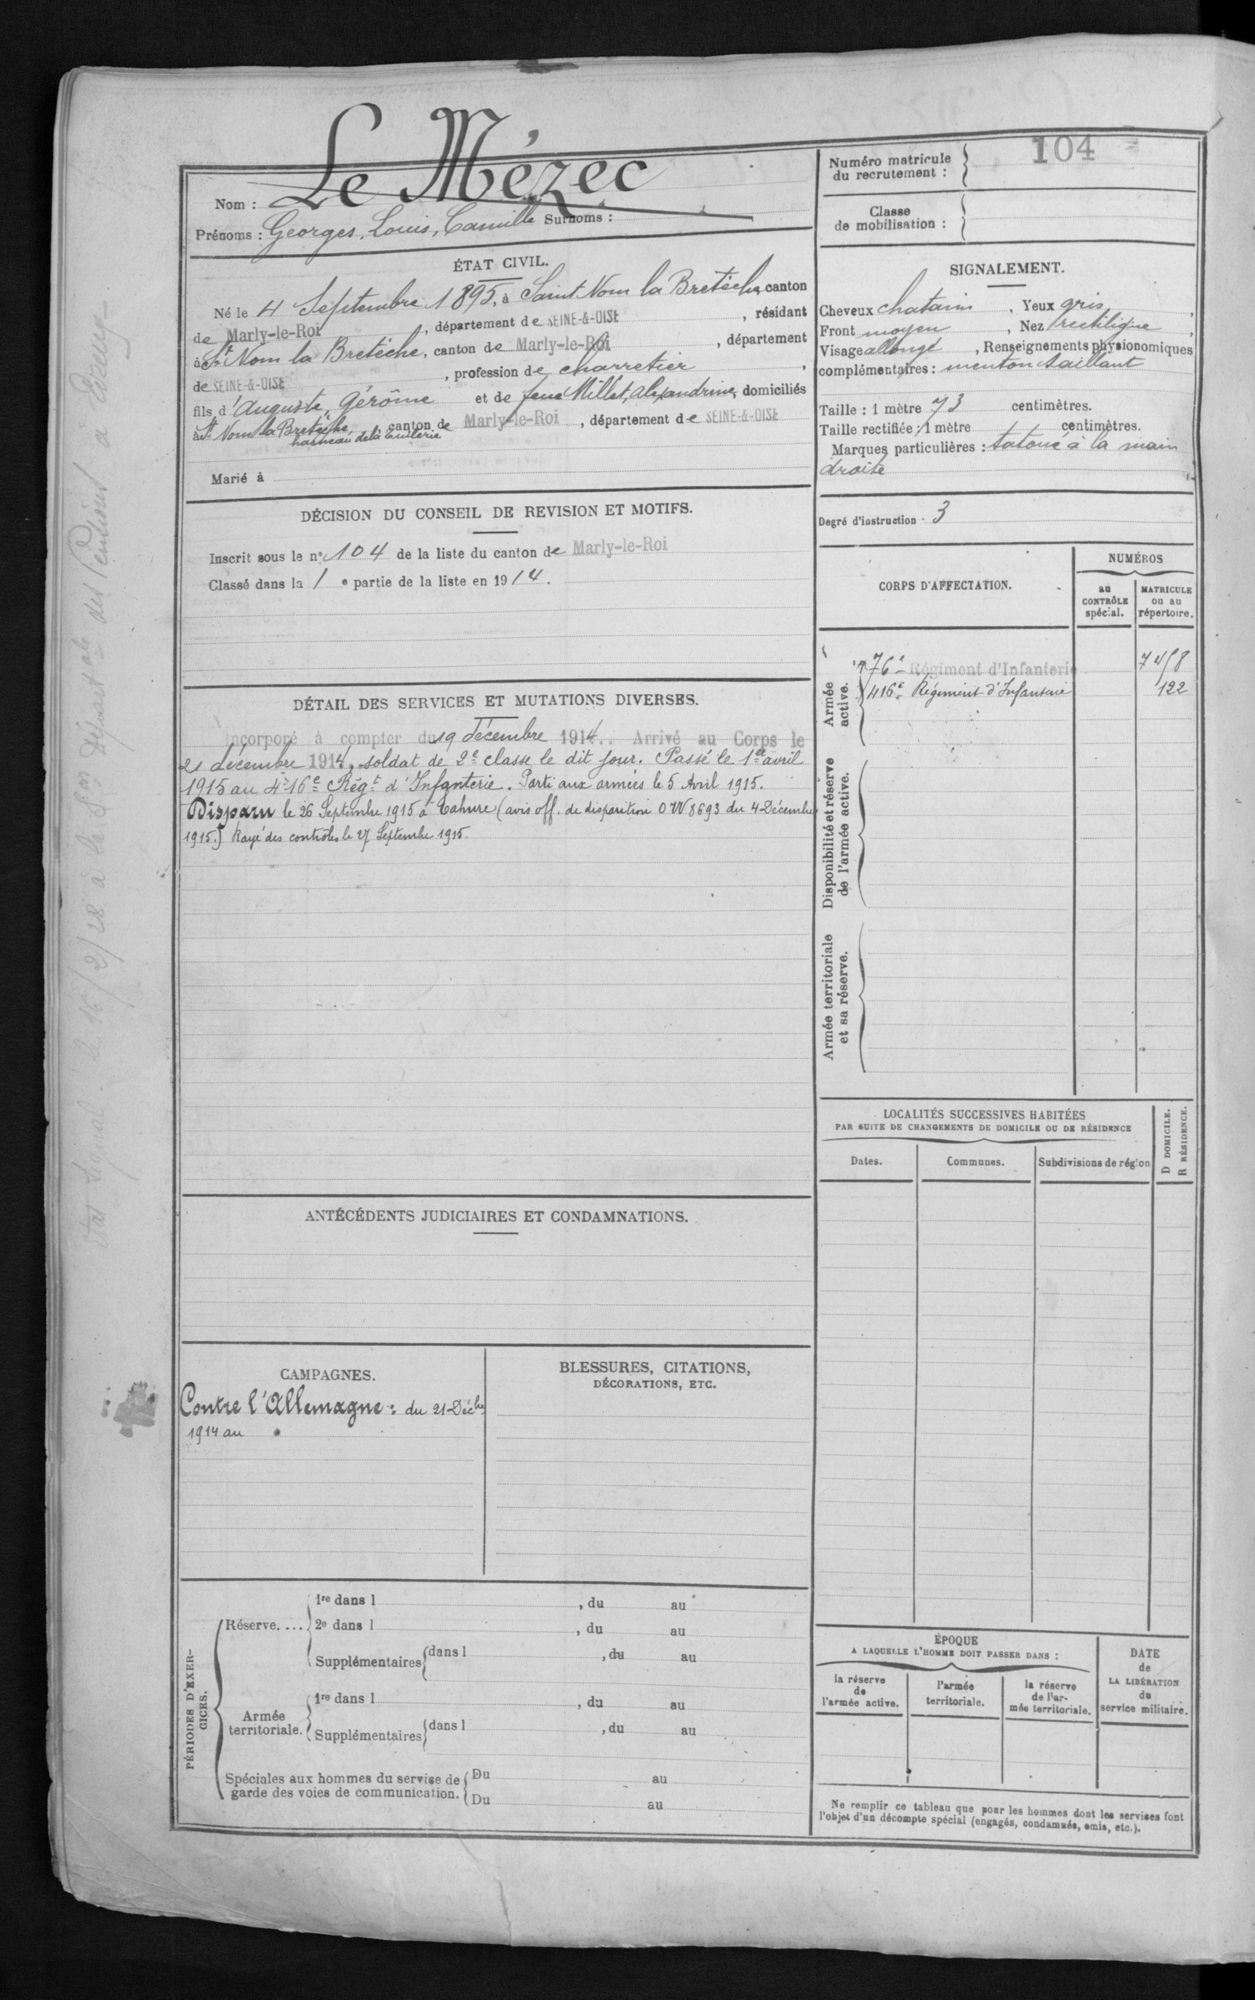 Le Mézec
Nom :
Prénoms : Georges, Louis, Camille Surnoms :
ÉTAT CIVIL.
Né le 4 Septembre 1895, à Saint Nom la Bretèche, canton
de Marly-le-Roi, département de SEINE-&-OISE, résidant
à St Nom la Bretèche, canton de Marly-le-Roi, département
de SEINE-&-OISE, profession de charretier,
fils d'Auguste, Gérôme et de feue Millet, Alexandrine, domiciliés
à St Nom la Bretèche, canton de Marly-le-Roi, département de SEINE-&-OISE
hameau de la tuilerie
Marié à
DÉCISION DU CONSEIL DE REVISION ET MOTIFS.
Inscrit sous le n° 104 de la liste du canton de Marly-le-Roi
Classé dans la 1e partie de la liste en 1914.
DÉTAIL DES SERVICES ET MUTATIONS DIVERSES.
Incorporé à compter du 19 décembre 1914.. Arrivé au Corps le
21 décembre 1914, soldat de 2e classe le dit jour. Passé le 1er avril
1915 au 416e Régt d'Infanterie. Parti aux armées le 5 Avril 1915.
Disparu le 26 Septembre 1915 à Tahure (avis off. de disparition OW 8693 du 4 Décembre
1915.) Rayé des contrôles le 27 Septembre 1915.
ANTÉCÉDENTS JUDICIAIRES ET CONDAMNATIONS.
CAMPAGNES.
Contre l'Allemagne : du 21 Décbre
1914 au
BLESSURES, CITATIONS,
DÉCORATIONS, ETC.
PÉRIODES D'EXER-
CICES.
Réserve....
1re dans l , du au
2e dans l , du au
Supplémentaires dans l , du au
Armée
territoriale.
1re dans l , du au
Supplémentaires dans l , du au
Spéciales aux hommes du service de
garde des voies de communication.
Du au
Du au
Numéro matricule
du recrutement :
104
Classe
de mobilisation :
SIGNALEMENT.
Cheveux chatain, Yeux gris,
Front moyen, Nez rectiligne,
Visage allongé, Renseignements physionomiques
complémentaires : menton saillant
Taille : 1 mètre 73 centimètres.
Taille rectifiée : 1 mètre centimètres.
Marques particulières : tatoué à la main
droite
Degré d'instruction : 3
CORPS D'AFFECTATION.
NUMÉROS
au
CONTRÔLE
spécial.
MATRICULE
ou au
répertoire.
Armée
active.
76e Régiment d'Infanterie 7458
416e Régiment d'Infanterie 122
Disponibilité et réserve
de l'armée active.
Armée territoriale
et sa réserve.
LOCALITÉS SUCCESSIVES HABITÉES
PAR SUITE DE CHANGEMENTS DE DOMICILE OU DE RÉSIDENCE
D DOMICILE.
R RÉSIDENCE.
Dates. Communes. Subdivisions de région
ÉPOQUE
A LAQUELLE L'HOMME DOIT PASSER DANS :
la réserve
de
l'armée active.
l'armée
territoriale.
la réserve
de l'ar-
mée territoriale.
DATE
de
LA LIBÉRATION
du
service militaire.
Ne remplir ce tableau que pour les hommes dont les services font
l'objet d'un décompte spécial (engagés, condamnés, omis, etc.).